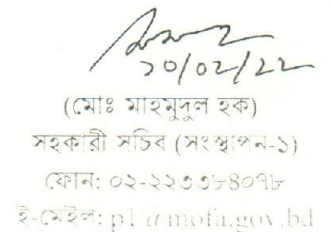 ২০/০২/২২
(মোঃ মাহমুদুল হক)
সহকারী সচিব (সংস্থাপন-১)
ফোন: ০২-২২৩৩৮৪০৭৮
ই-মেইল: p1@mofa.gov.bd